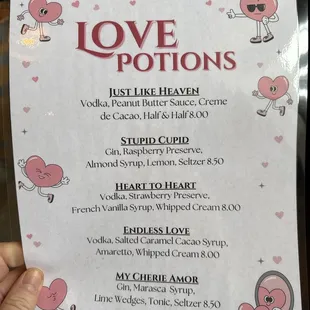 LOVE
POTIONS
JUST LIKE HEAVEN
Vodka, Peanut Butter Sauce, Creme
de Cacao, Half & Half 8.00
STUPID CUPID
Gin, Raspberry Preserve,
Almond Syrup, Lemon, Seltzer 8.50
HEART TO HEART
Vodka, Strawberry Preserve,
French Vanilla Syrup, Whipped Cream 8.00
ENDLESS LOVE
Vodka, Salted Caramel Cacao Syrup,
Amaretto, Whipped Cream 8.00
MY CHERIE AMOR
Gin, Marasca Syrup,
Lime Wedges, Tonic, Seltzer 8.50